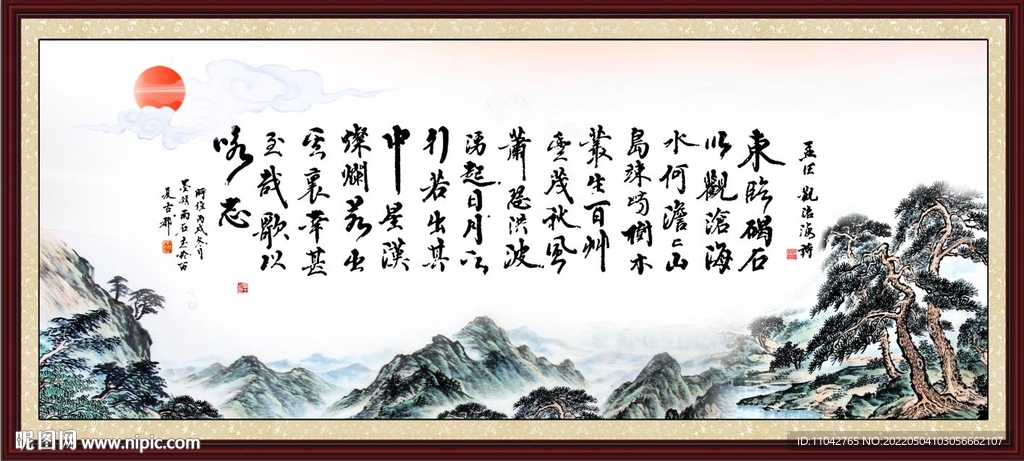 孟德 觀滄海詩
東臨碣石
以觀滄海
水何澹〻山
島竦峙樹木
叢生百艸
豐茂秋風
蕭瑟洪波
湧起日月之
行若出其
中星漢
燦爛若出
其裏幸甚
至哉歌以
詠志
丙戌冬月
昵图网 www.nipic.com
ID:11042765 NO:20220504103056662107